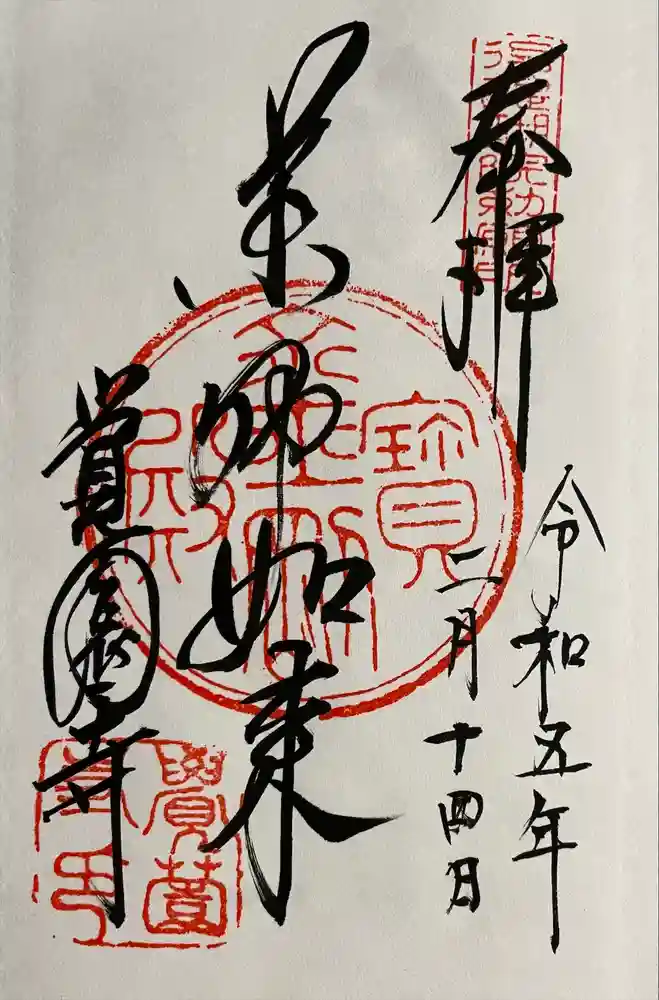 奉拝
令和五年
二月十四日
薬師如来
覚園寺
覺薗
寺印